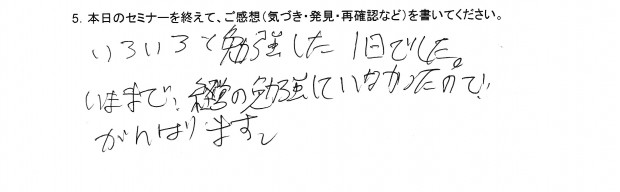 5. 本日のセミナーを終えて、ご感想(気づき・発見・再確認など)を書いてください。
いろいろと勉強した1日でした。
いままで、経営の勉強していなかったので、
がんばります。